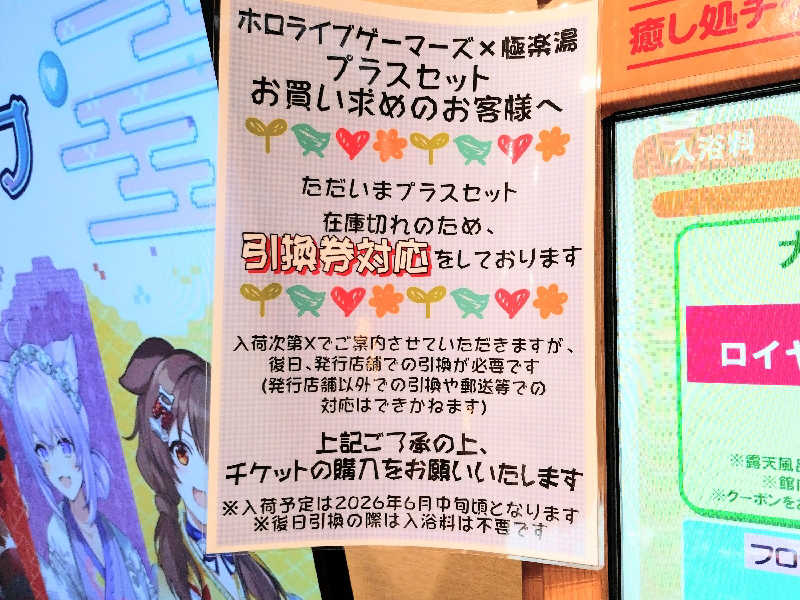 ホロライブゲーマーズ×極楽湯
プラスセット
お買い求めのお客様へ
ただいまプラスセット
在庫切れのため、
引換券対応をしております
入荷次第Xでご案内させていただきますが、
後日、発行店舗での引換が必要です
(発行店舗以外での引換や郵送等での
対応はできかねます)
上記ご了承の上、
チケットの購入をお願いいたします
※入荷予定は2026年6月中旬頃となります
※後日引換の際は入浴料は不要です
癒し処
入浴料
ロイヤ
※露天風呂
※館
※クーポンをお
フロ